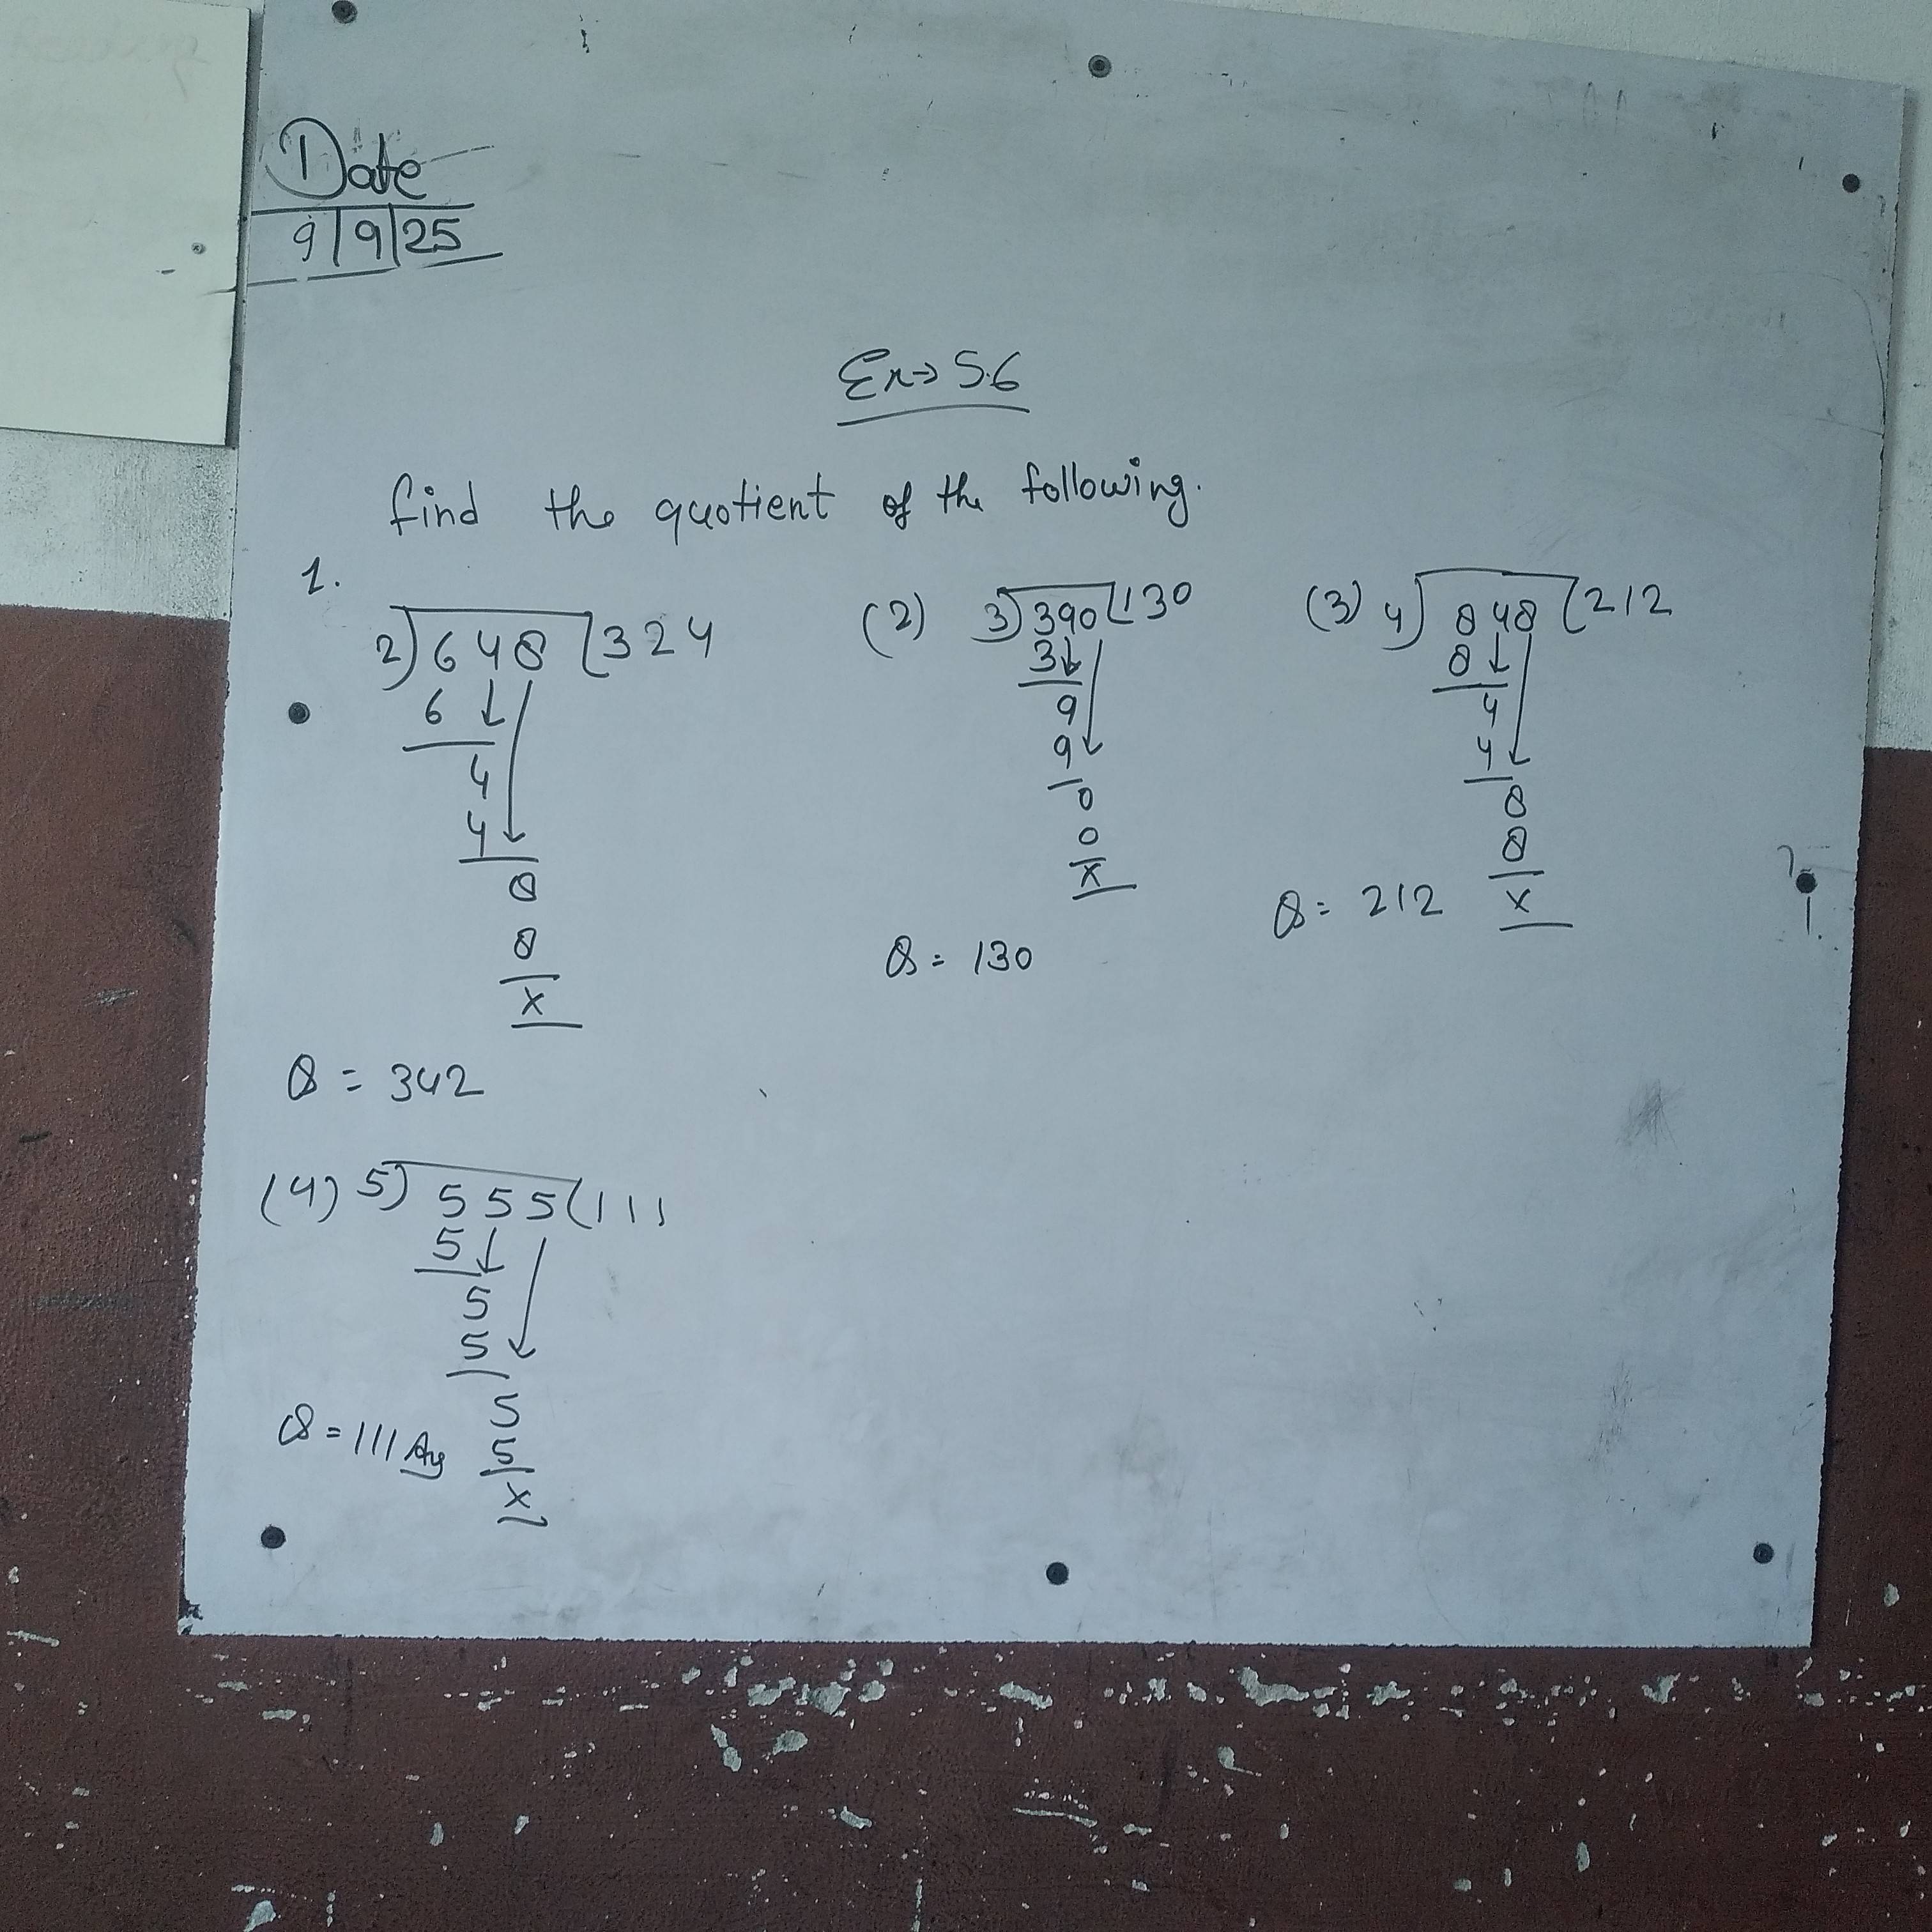 Date
9/9/25
Ex→5.6
find the quotient of the following.
1.
2)648(324
6
4
4
8
8
x
Q = 342
(2) 3)390(130
3
9
9
0
0
x
Q = 130
(3) 4)848(212
8
4
4
8
8
x
Q = 212
(4) 5)555(111
5
5
5
5
5
x
Q = 111 Ans